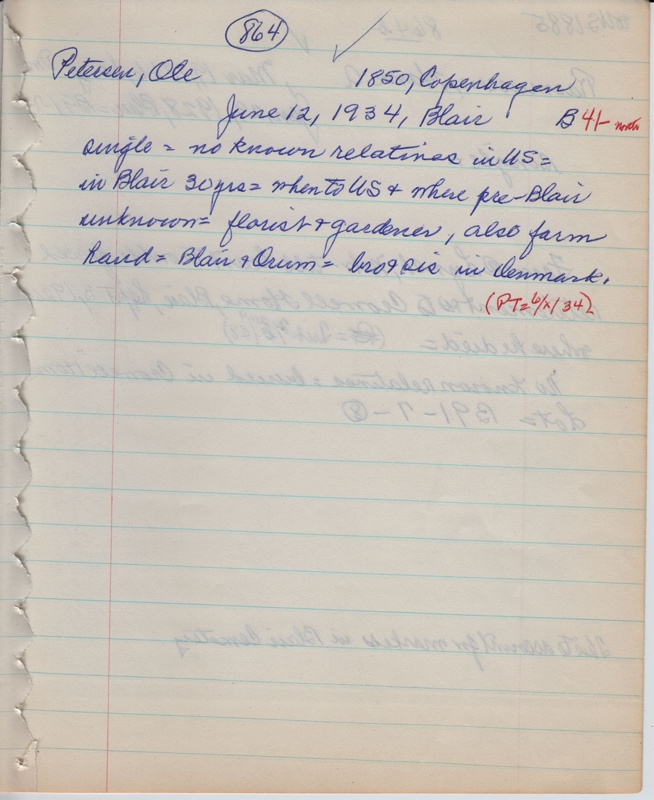 864 ✓
Petersen, Ole 1850, Copenhagen
June 12, 1934, Blair B 41- north
single = no known relatives in US =
in Blair 30 yrs = when to US & where pre-Blair
unknown = florist & gardener, also farm
hand = Blair & Orum = bro & sis in Denmark.
(PT = 6/x/34)